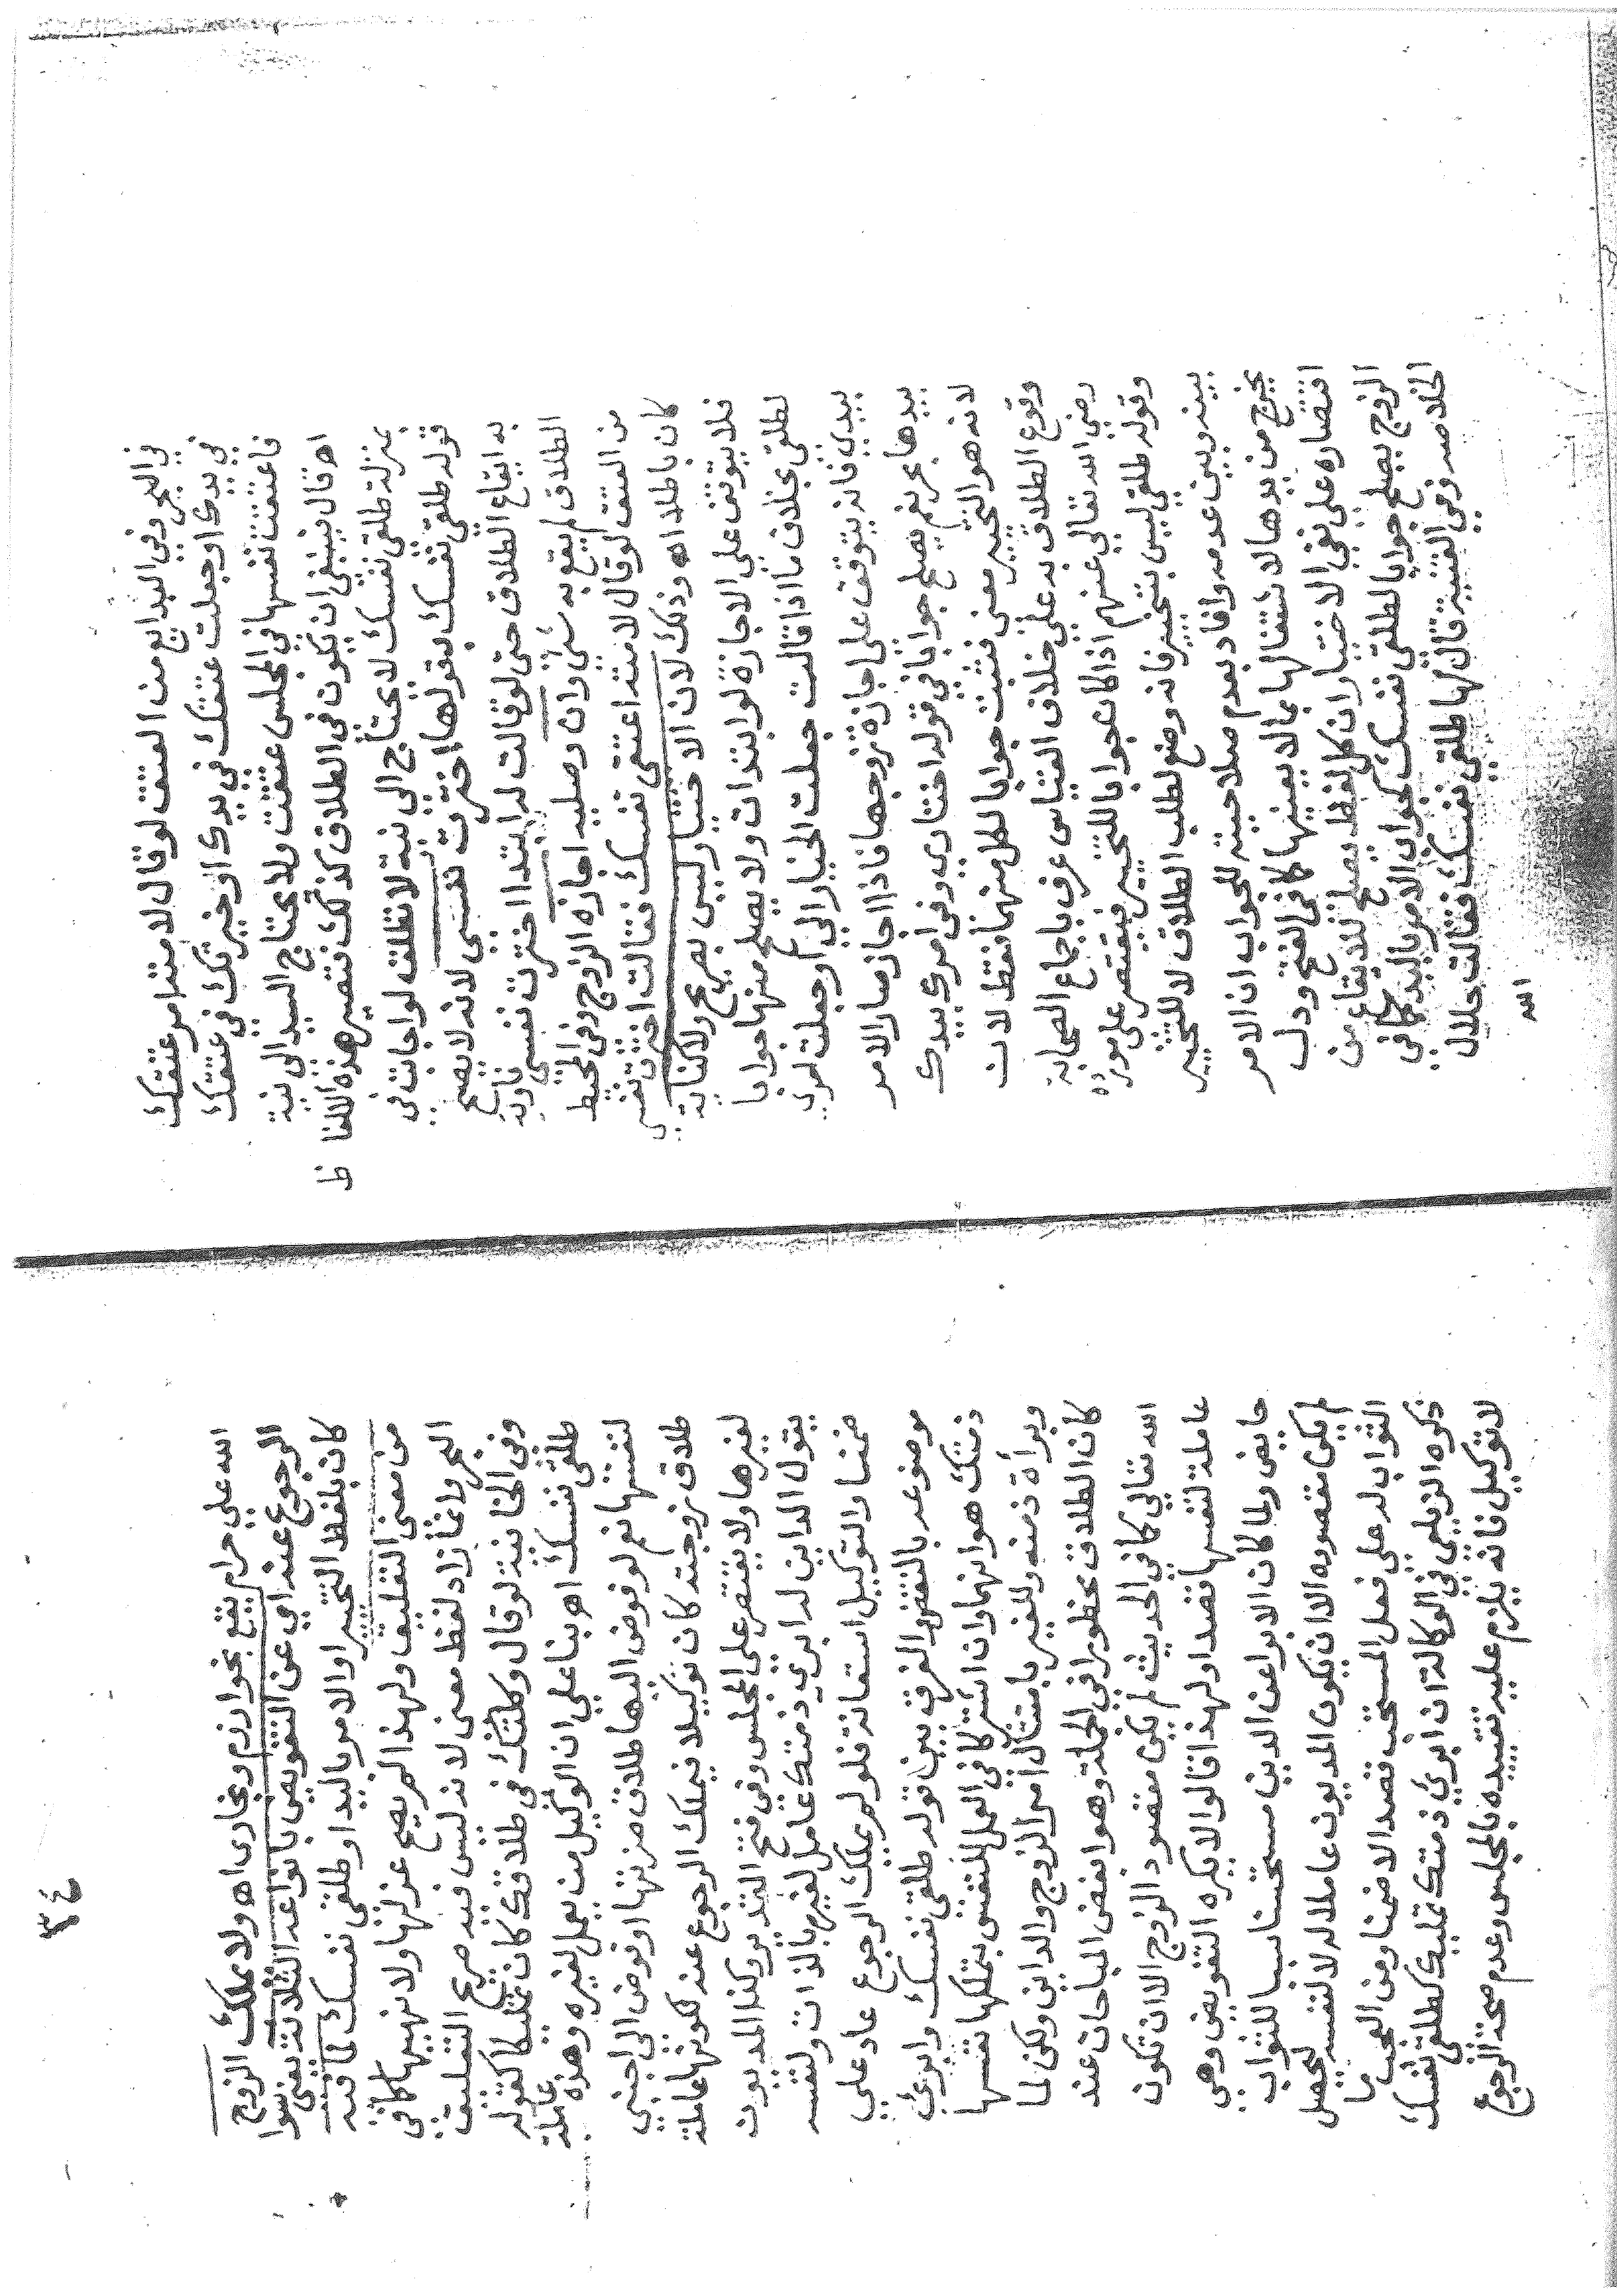 في البحر وفي البدايع من العتق لوقال لامته امر عتقك
في يدك اوجعلت عتقك في يدك او خيرتك في عتقك
فاعتقت نفسها في المجلس عتقت ولا يحتاج السيد الى نية
اه قال فينبغي ان يكون في الطلاق كذلك فتصير هذه الالفاظ
بمنزلة طلقي نفسك لا يحتاج الى نية لا تطلقه لو اجابته في
قوله طلقي نفسك بقولها اخترت نفسي لانه لا يصح
به ايقاع الطلاق حتى لو قالت له ابتدا اخترت نفسي ناوية
الطلاق لم يقع به شئ وان وصليه اجازه الزوج وفي المحيط
من العتق لو قال لامته اعتقي نفسك فقالت اخترت نفسي
كان باطلا اه وذلك لان الاختيار ليس بصريح ولا كناية
فلا يتوقف علي الاجازة لو ابتدات ولا يصلح منها جوابا
لطلقي بخلاف ما اذا قالت جعلت الخيار الي او جعلت امري
بيدي فانه يتوقف على اجازة زوجها فاذا اجاز صار الامر
بيدها بحر نعم يصلح جوابا في قوله اختاري وفي امرك بيدك
لانه هو التخيير معنى فثبت جوابا لكل منهما فقط لان
وقوع الطلاق به على خلاف القياس عرف باجماع الصحابة
رضي الله تعالى عنهم اذا كان جوابا للتخيير فيقتصر على مورده
وقوله طلقي ليس بتخيير فانه وضع لطلب الطلاق لا للتخيير
بينه وبين عدمه وافاد بعدم صلاحيته للجواب ان الامر
يخرج من يدها لاشتغالها بما لا يعنيها كما في الفتح ودل
اقتصاره على نفي الاختيار ان كل لفظ يصلح للايقاع من
الزوج يصلح جوابا لطلقي نفسك كجواب الامر باليد كما في
الخلاصه وفي القنية قال لها طلقي نفسك فقالت حلال
الله
٣٤
الله علي حرام يقع بخوارزم وبخارى اه ولا يملك الزوج
الرجوع عنه اي عن التفويض بانواعه الثلاثة يعني سوا
كان بلفظ التخيير او الامر باليد او طلقي نفسك لما فيه
من معنى التعليق ولهذا لم يصح عزلها ولا نهيها كما في
البحر وانما زاد لفظ معنى لانه ليس فيه صريح التعليق
وفي الخانية لو قال وكلتك في طلاقك كان تمليكا كقوله
طلقي نفسك اه بنا على ان الوكيل من يعمل لغيره وهذه عاملة
لنفسها نعم لو فوض اليها طلاق ضرتها او فوض الى اجنبي
طلاق زوجته كان توكيلا فيملك الرجوع عنه لكونها عاملة
لغيرها ولا يقتصر على المجلس وفي فتح القدير وكذا المديون
يقول الداين له ابرئ ذمتك عامل لغيره بالذات ولنفسه
ضمنا والتوكيل استعانة فلو لم يملك الرجوع عاد على
موضوعه بالنقض والفرق بين قوله طلقي نفسك وابرئ
ذمتك هو انهما وان اشتركا في العمل للنفس بتملكها نفسها
وبرأة ذمته وللغير بامتثال امر الزوج والداين ولكن لما
كان الطلاق محظورا في الجملة وهو ابغض المباحات عند
الله تعالى كما في الحديث لم يكن مقصود الزوج الا ان تكون
عاملة لنفسها قصدا ولهذا قالوا لا يكره التفويض وهي
حايض ولما كان الابرا عن الدين مستحسنا سببا للثواب
لم يكن مقصوده الا ان يكون المديون عاملا له لا لنفسه ليحصل
الثواب له على فعل المستحب قصدا لا ضمنا ومن العجب ما
ذكره الزيلعي في الوكالة ان ابرئ ذمتك تمليك كطلقي نفسك
لا توكيل فانه يلزم عليه تقييده بالمجلس وعدم صحة الرجوع